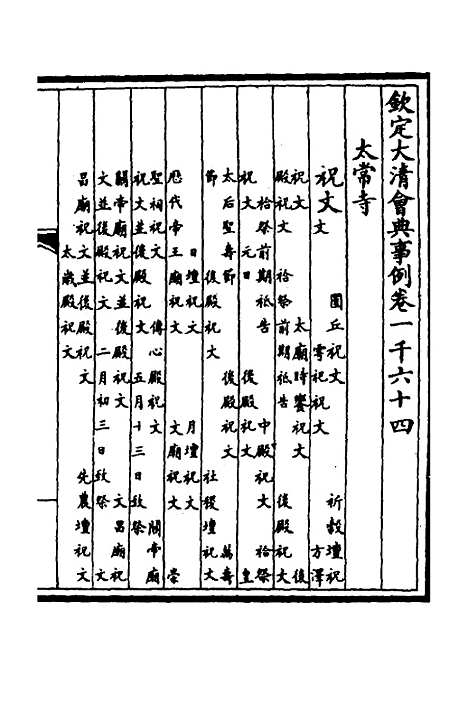 欽定大清會典事例卷一千六十四
太常寺
祝文
圜丘祝文 祈穀壇祝
文 雩祀祝文 方澤
祝文 太廟時饗祝文 後
殿祝文 祫祭前期祗告 後殿祝文
祫祭前期祗告 中殿祝文 祫祭
祝文 元日 後殿祝文 皇
太后聖壽節 後殿祝文 萬壽
節 後殿祝文 社稷壇祝文
日壇祝文 月壇祝文
歷代帝王廟祝文 文廟祝文 崇
聖祠祝文 傳心殿祝文 關帝廟
祝文並後殿祝文 五月十三日致祭
關帝廟祝文並後殿祝文 文昌廟祝
文並後殿祝文 二月初三日致祭 文
昌廟祝文並後殿祝文 先農壇祝文
太歲殿祝文